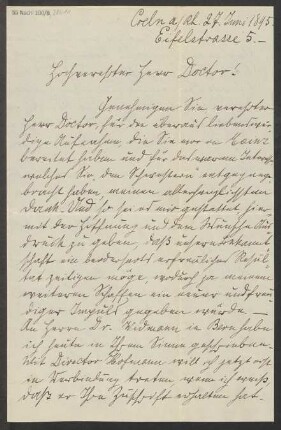 Coeln a/Rh. 27. Juni 1895.
Eifelstrasse 5.—
Hochverehrter Herr Doctor!
Genehmigen Sie verehrter
Herr Doctor, für die überaus liebenswür-
dige Aufnahme, die Sie mir in Mainz
bereitet haben und für das warme Interesse
welches Sie, den „Schwestern" entgegenge-
bracht haben meinen allerherzlichsten
Dank. Und so sei es mir gestattet, hier
mit der Hoffnung und dem Wunsche Aus-
druck zu geben, daß unsere Bekannt
schaft ein beiderseits erfreuliches Resul
tat zeitigen möge, wodurch ja meinem
weiteren Schaffen ein neuer und freu
diger Impuls gegeben würde —
An Herrn Dr. Widmann in Bern habe
ich heute in Ihrem Sinne geschrieben.
Mit Director Hofmann will ich jetzt erst
in Verbindung treten wenn ich weiß,
daß er Ihre Zuschrift erhalten hat.